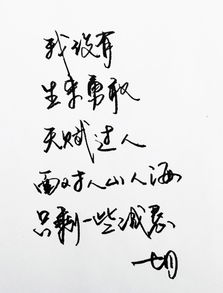 我没有
生来勇敢
天赋过人
面对人山人海
只剩一些诚恳